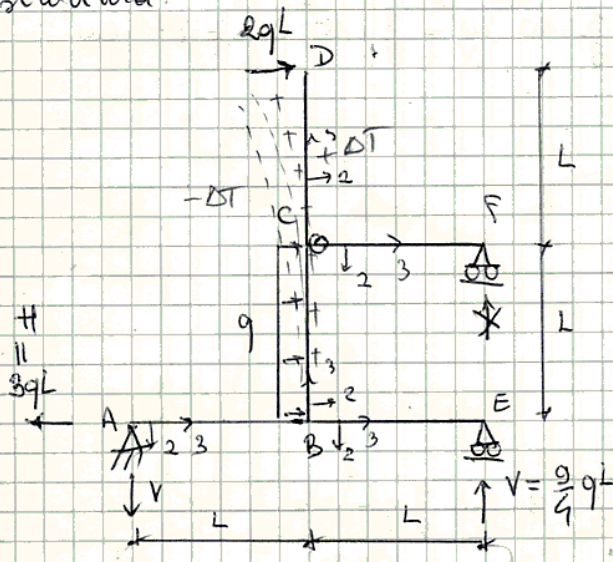 2qL
D
+ΔT
2
-ΔT
C
F
2 3
L
q
L
H
=
3qL
3
2
A
2 3
B
2
3
E
V
V = 9/4 qL
L
L